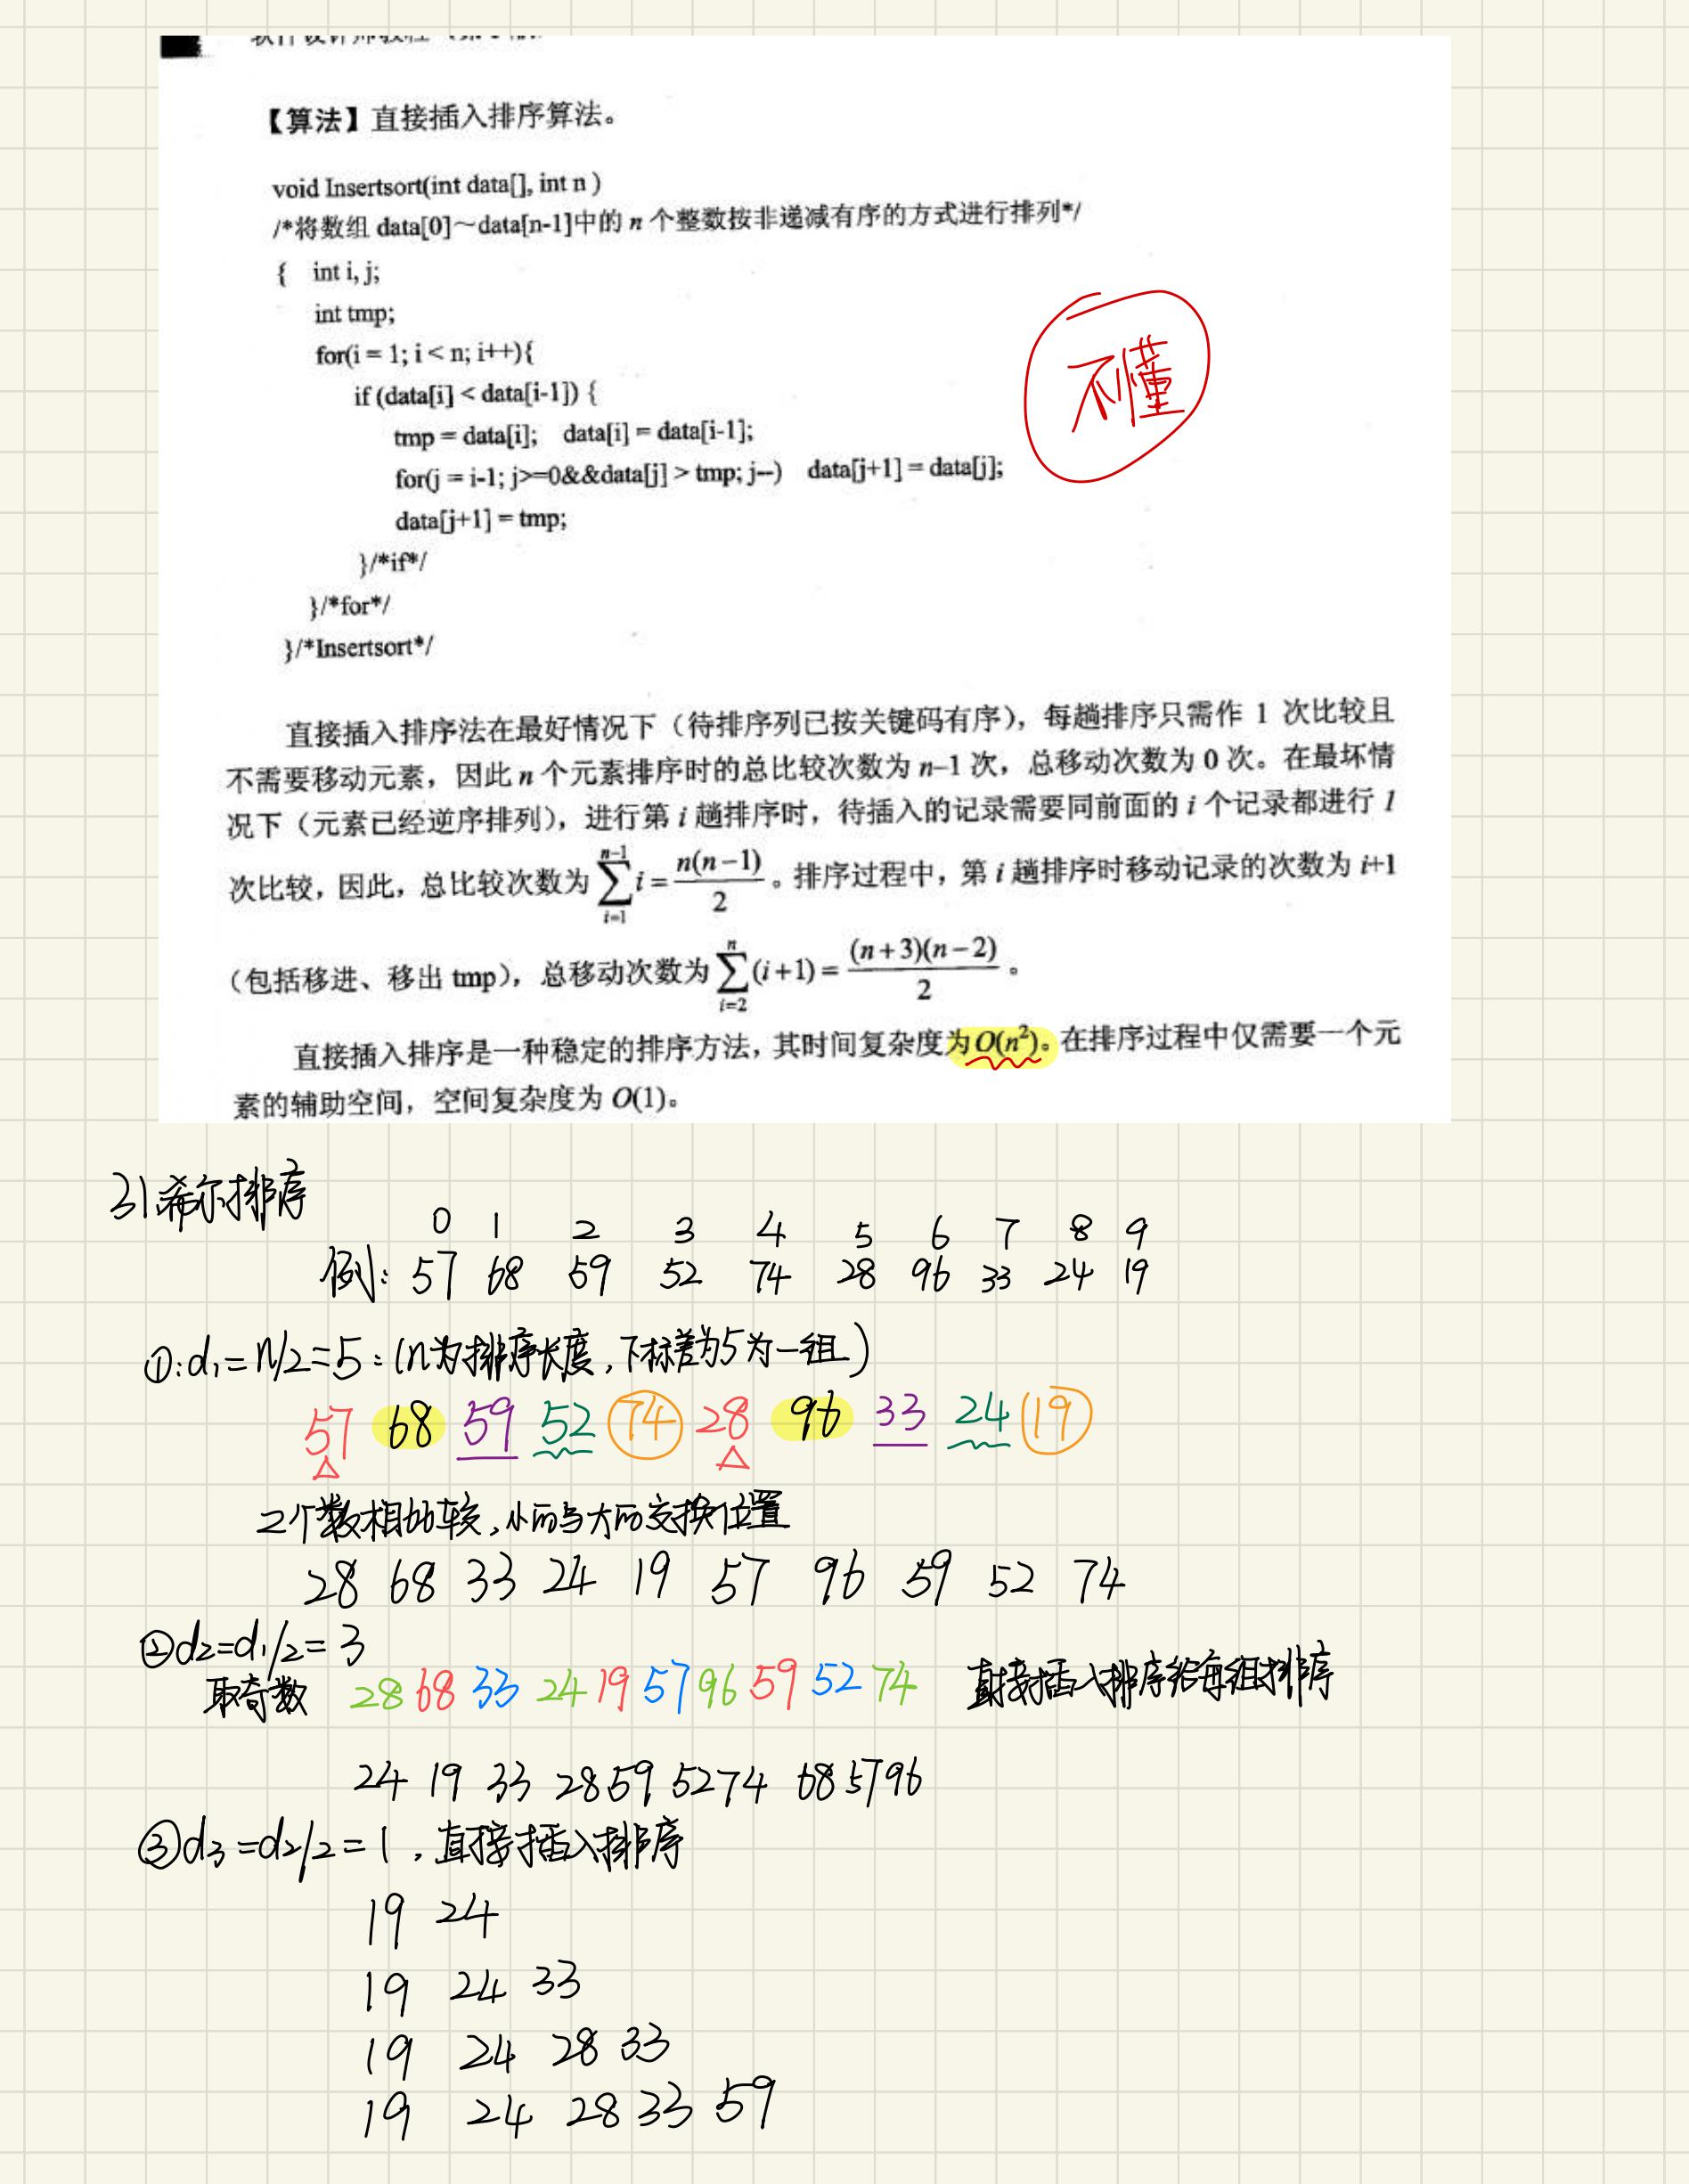 【算法】直接插入排序算法。
void Insertsort(int data[], int n )
/*将数组 data[0]～data[n-1]中的 n 个整数按非递减有序的方式进行排列*/
{ int i, j;
int tmp;
for(i = 1; i < n; i++){
if (data[i] < data[i-1]) {
tmp = data[i]; data[i] = data[i-1];
for(j = i-1; j>=0&&data[j] > tmp; j--) data[j+1] = data[j];
data[j+1] = tmp;
}/*if*/
}/*for*/
}/*Insertsort*/
不懂
直接插入排序法在最好情况下（待排序列已按关键码有序），每趟排序只需作 1 次比较且
不需要移动元素，因此 n 个元素排序时的总比较次数为 n–1 次，总移动次数为 0 次。在最坏情
况下（元素已经逆序排列），进行第 i 趟排序时，待插入的记录需要同前面的 i 个记录都进行 1
次比较，因此，总比较次数为 \sum_{i=1}^{n-1} i = \frac{n(n-1)}{2} 。排序过程中，第 i 趟排序时移动记录的次数为 i+1
（包括移进、移出 tmp），总移动次数为 \sum_{i=2}^{n} (i+1) = \frac{(n+3)(n-2)}{2} 。
直接插入排序是一种稳定的排序方法，其时间复杂度为 O(n²)。在排序过程中仅需要一个元
素的辅助空间，空间复杂度为 O(1)。
3).希尔排序
0 1 2 3 4 5 6 7 8 9
例: 57 68 59 52 74 28 96 33 24 19
①:d₁=n/2=5:(n为排序长度,下标差为5为一组)
57 68 59 52 74 28 96 33 24 19
2个数相比较,小的与大的交换位置
28 68 33 24 19 57 96 59 52 74
②d₂=d₁/2=3
取奇数 28 68 33 24 19 57 96 59 52 74 直接插入排序给每组排序
24 19 33 28 59 52 74 68 57 96
③d₃=d₂/2=1,直接插入排序
19 24
19 24 33
19 24 28 33
19 24 28 33 59